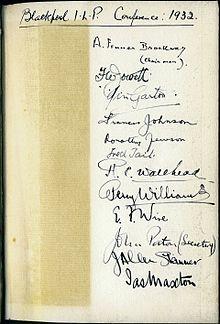 Blackpool I.L.P. Conference: 1932.
A. Fenner Brockway
(Chairman).
Wm Garton.
Francis Johnson
Dorothy Jewson
Fred Tait
R. C. Wallhead
Percy Williams
E. F. Wise
John Paton (Secretary)
J Allen Skinner
Jas Maxton